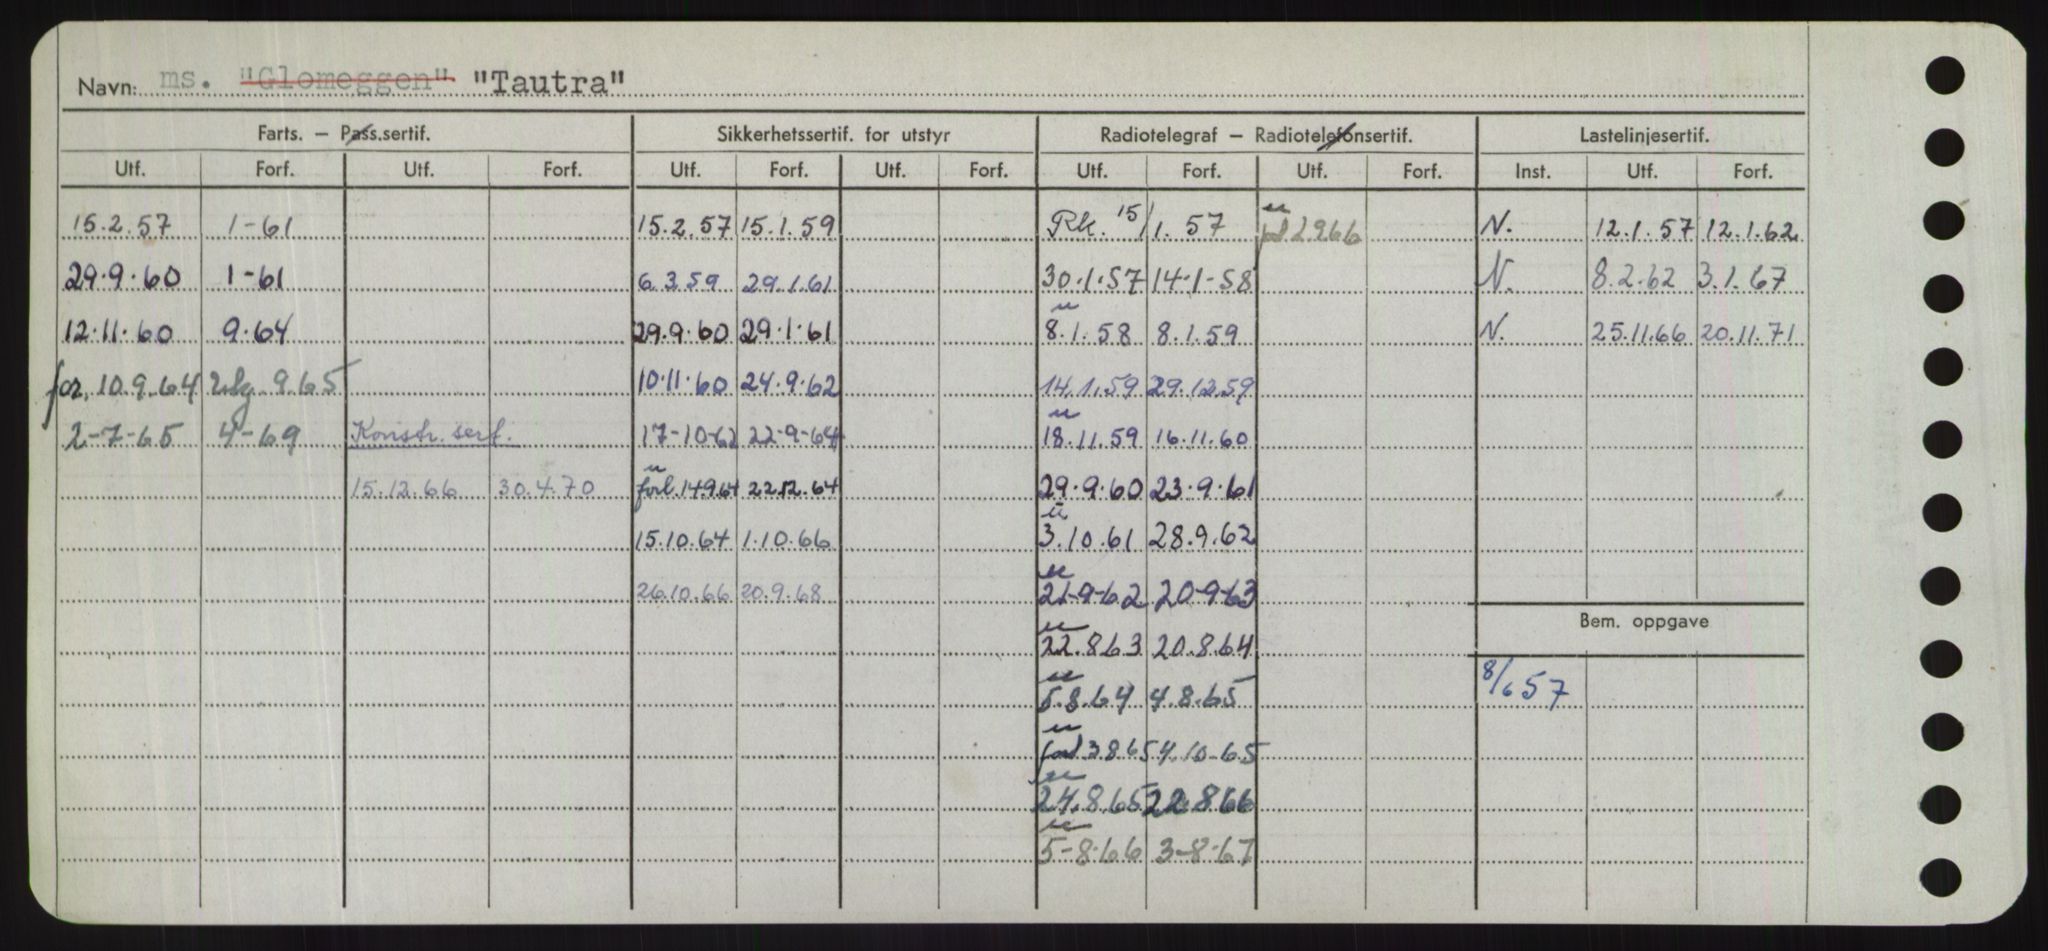 Navn: ms. "Glomeggen" "Tautra"
Farts. — Pass.sertif. Sikkerhetssertif. for utstyr Radiotelegraf — Radiotelefonsertif. Lastelinjesertif.
Utf. Forf. Utf. Forf. Utf. Forf. Utf. Forf. Utf. Forf. Utf. Forf. Inst. Utf. Forf.
15.2.57 1-61 15.2.57 15.1.59 Rk. 15/1.57 N. 12.1.57 12.1.62
29.9.60 1-61 6.3.59 29.1.61 30.1.57 14.1-58 N. 8.2.62 3.1.67
12.11.60 9.64 29.9.60 29.1.61 8.1.58 8.1.59 N. 25.11.66 20.11.71
for. 10.9.64 9.65 10.11.60 24.9.62 14.1.59 29.12.59
2-7-65 4-69 Konstr. sert. 17-10-62 22-9-64 18.11.59 16.11.60
15.12.66 30.4.70 forl. 14.9.64 22.12.64 29.9.60 23.9.61
15.10.64 1.10.66 3.10.61 28.9.62
26.10.66 20.9.68 21-9-62 20-9-63
Bem. oppgave
22.8.63 20.8.64
8/6 57
5.8.64 4.8.65
3.8.65 4.10-65
24.8.65 22.8.66
5-8.66 3-8.67